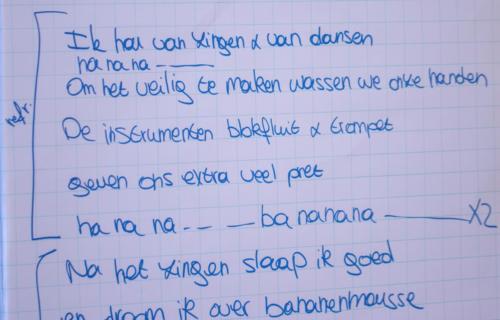 Ik hou van zingen & van dansen
na na na -- ——
Om het veilig te maken wassen we onze handen
refr.
De instrumenten blokfluit & trompet
geven ons extra veel pret
na na na -- — ba na na na —— X2
Na het zingen slaap ik goed
en droom ik over bananenmousse